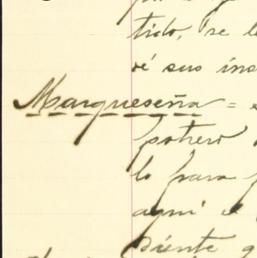 tido, se l
vé sus ins
Marqueseña =
potrero
lo para
aqui e
siente q